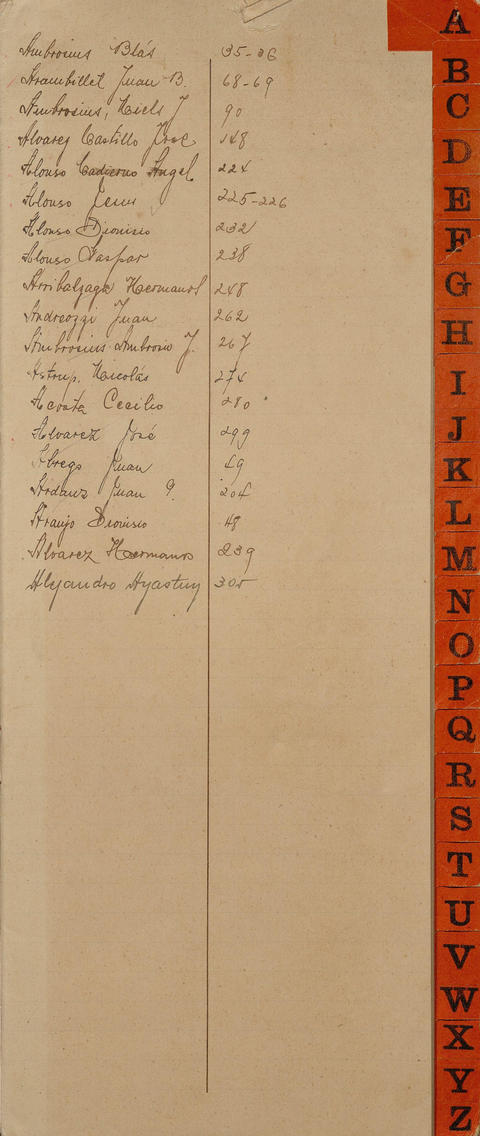 A
Ambrosius Blás 35-36
Arambillet Juan B. 68-69
Ambrosius, Niels J. 90
Alvarez Castillo José 148
Alonso Cadierno Angel 224
Alonso Jesus 225-226
Alonso Dionisio 232
Alonso Gaspar 238
Arribalzaga Hermanos 248
Andreozzi Juan 262
Ambrosius Ambrosio J. 267
Astrup, Nicolás 274
Acosta Cecilio 280
Alvarez José 299
Abrego Juan 49
Ardanz Juan P. 204
Araujo Dionisio 48
Alvarez Hermanos 239
Alejandro Ayastuy 305
B
C
D
E
F
G
H
I
J
K
L
M
N
O
P
Q
R
S
T
U
V
W
X
Y
Z